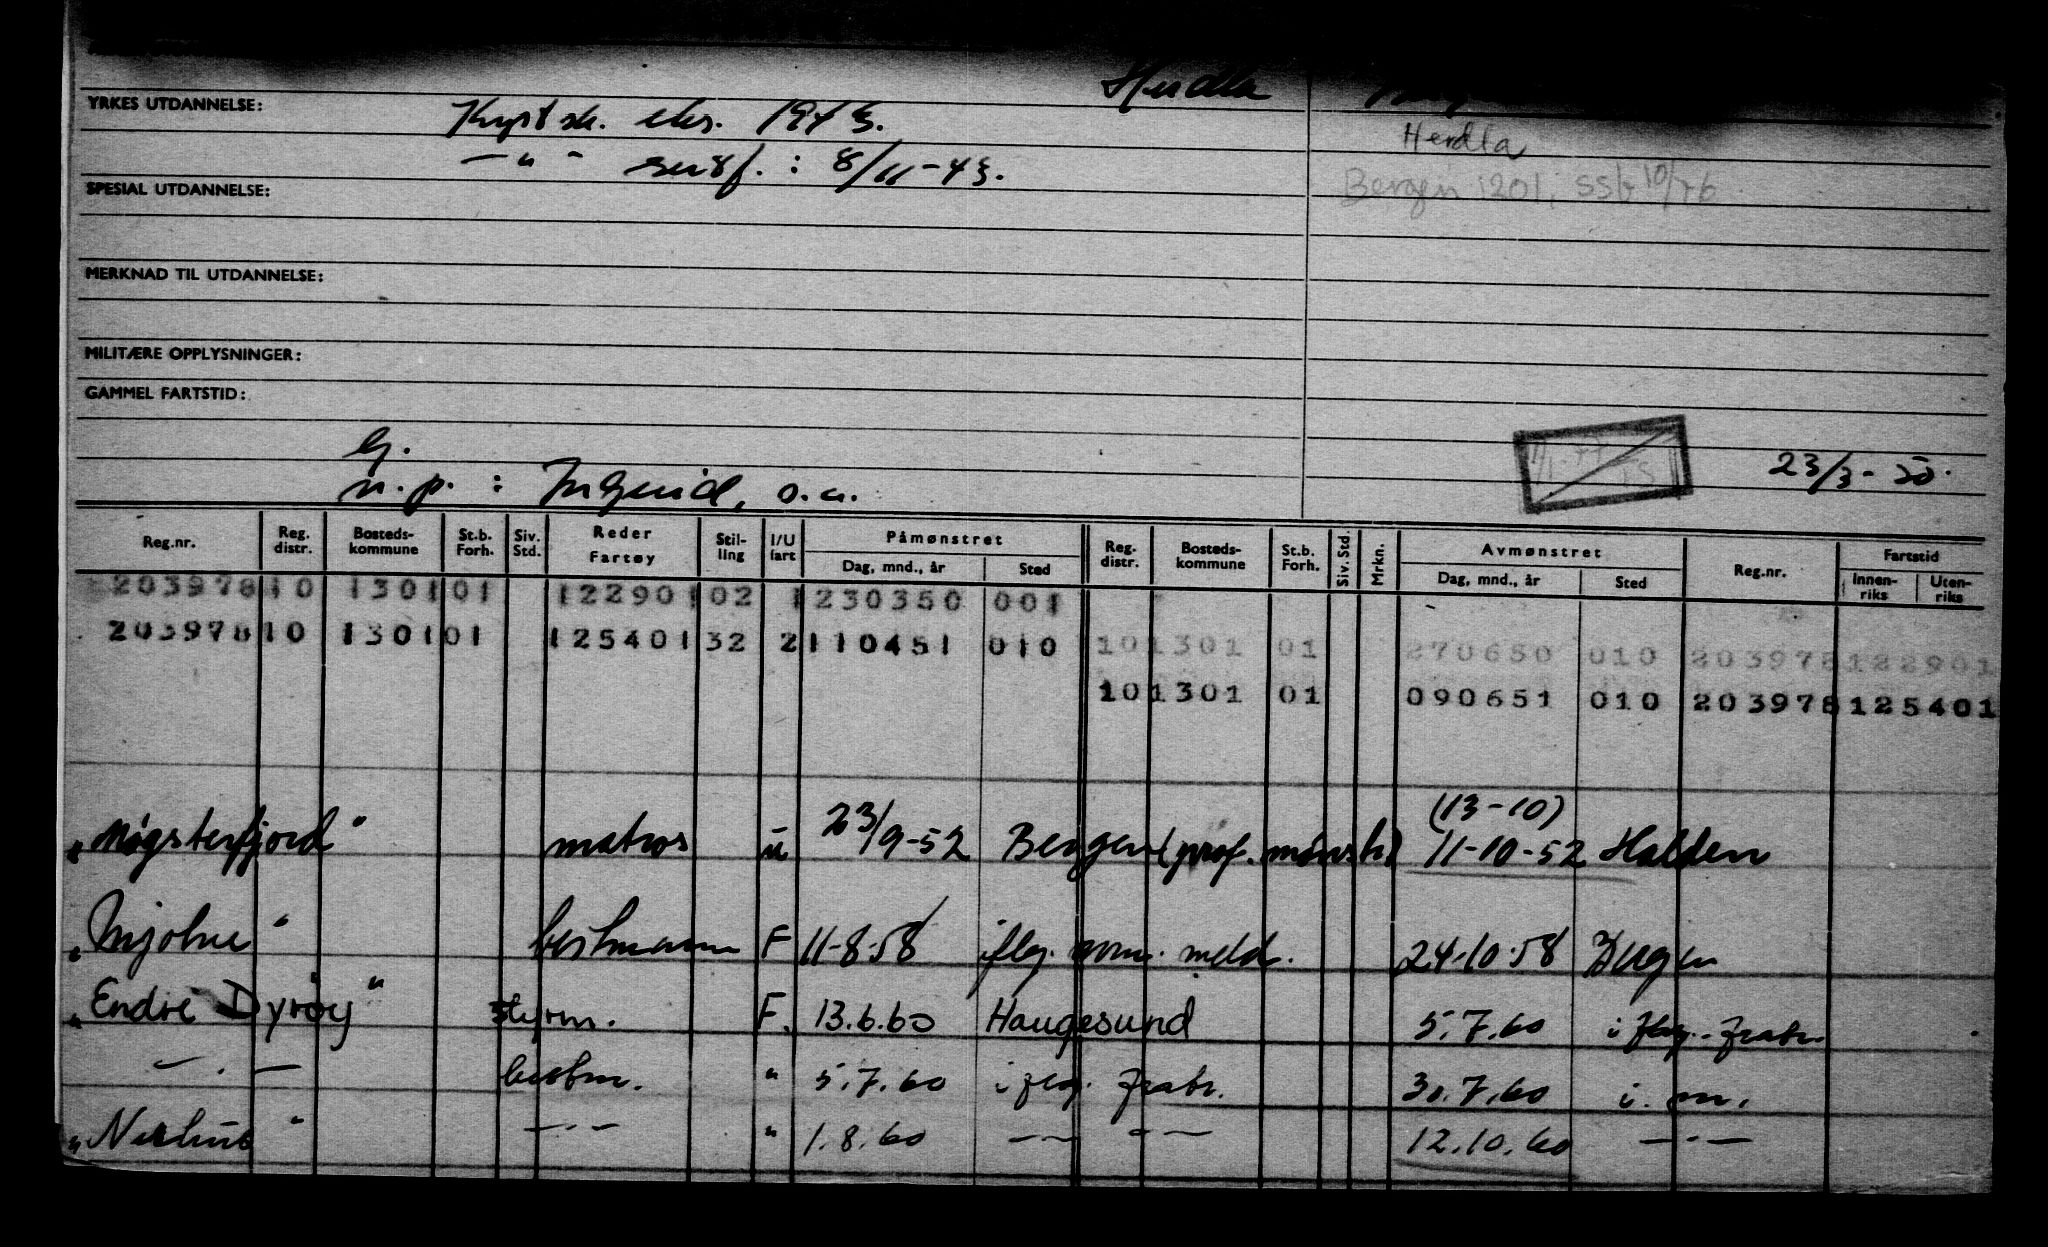 Herdla
YRKES UTDANNELSE: Kystsk. eks. 1943.
Herdla
—"— sertf. : 8/11-43.
Bergen 1201, SSb 10/76
SPESIAL UTDANNELSE:
MERKNAD TIL UTDANNELSE:
MILITÆRE OPPLYSNINGER:
GAMMEL FARTSTID:
G.
n.p. : Ingerid, o.a.
23/3-50.
Reg.nr. Reg. distr. Bosteds-kommune St.b. Forh. Siv. Std. Reder Fartøy Stil-ling I/U fart Påmønstret Dag, mnd., år Sted Reg. distr. Bosteds-kommune St.b. Forh. Siv. Std. Mrkn. Avmønstret Dag, mnd., år Sted Reg.nr. Fartstid Innen-riks Uten-riks
203978 10 1301 01 122901 02 1 230350 001
203978 10 1301 01 125401 32 2 110451 010 10 1301 01 270650 010 203978 122901
10 1301 01 090651 010 203978 125401
(13-10)
"Møgsterfjord" matros u 23/9-52 Bergen (prof. mønstr) 11-10-52 Halden
"Mjølne" bestmann F 11-8-58 iflg. mdld. 24-10-58 Bergen
"Endre Dyrøy" styrm. F. 13.6.60 Haugesund 5.7.60 i flg. fratr.
—.— bestm. " 5.7.60 i flg. fratr. 30.7.60 i. m.
" —.— " 1.8.60 —— —— 12.10.60 —.—